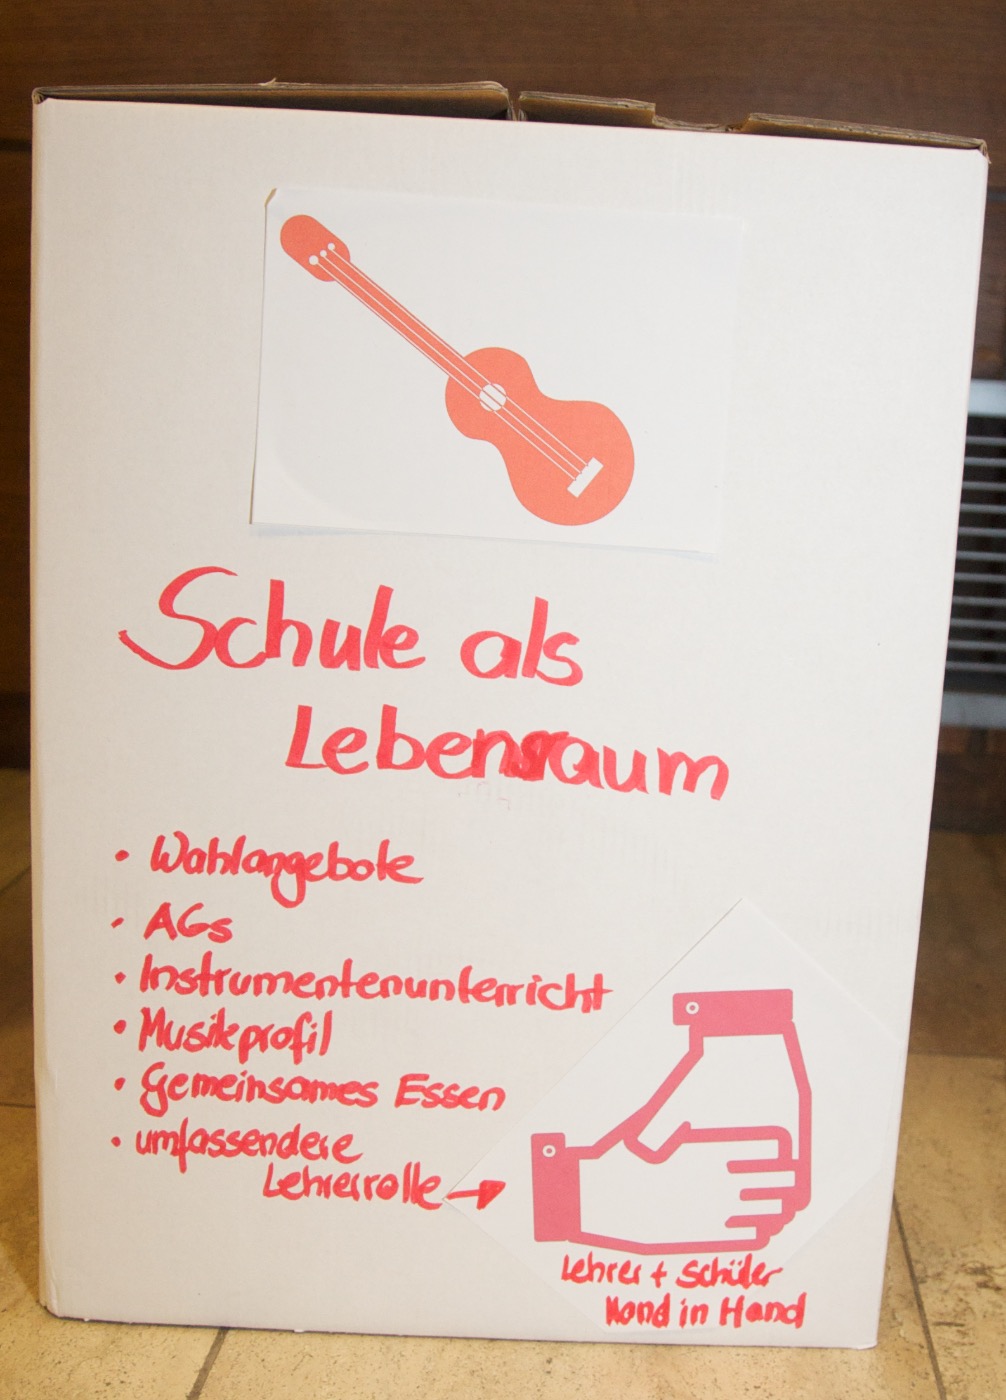 Schule als
Lebensraum
• Wahlangebote
• AGs
• Instrumentenunterricht
• Musikprofil
• Gemeinsames Essen
• umfassendere
Lehrerrolle →
Lehrer + Schüler
Hand in Hand